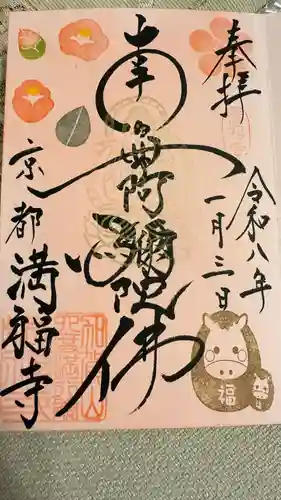 奉拝
令和八年
一月三日
南無阿彌陀佛
京都
満福寺
福